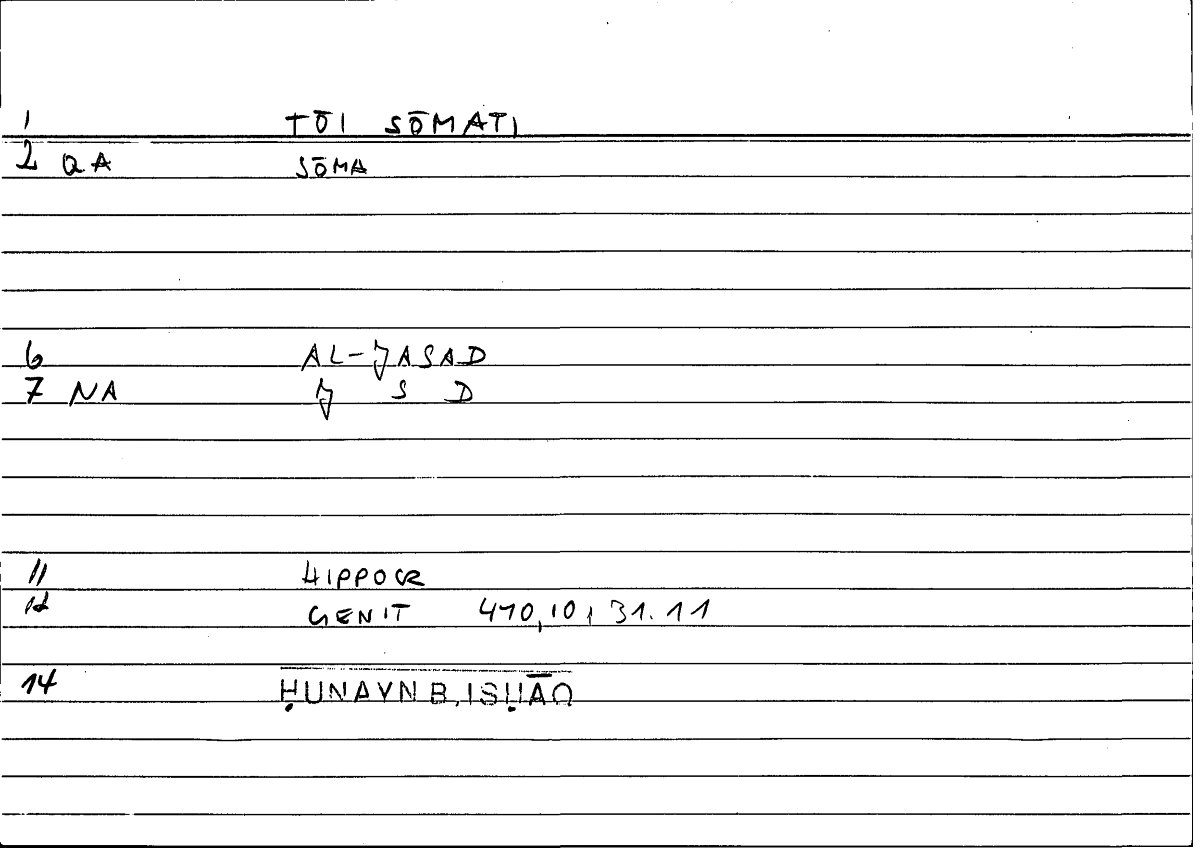 1 TŌI SŌMATI
2 QA SŌMA
6 AL-JASAD
7 NA J S D
11 HIPPOCR
12 GENIT 470,10; 31.11
14 ḤUNAYN B. ISḤĀQ